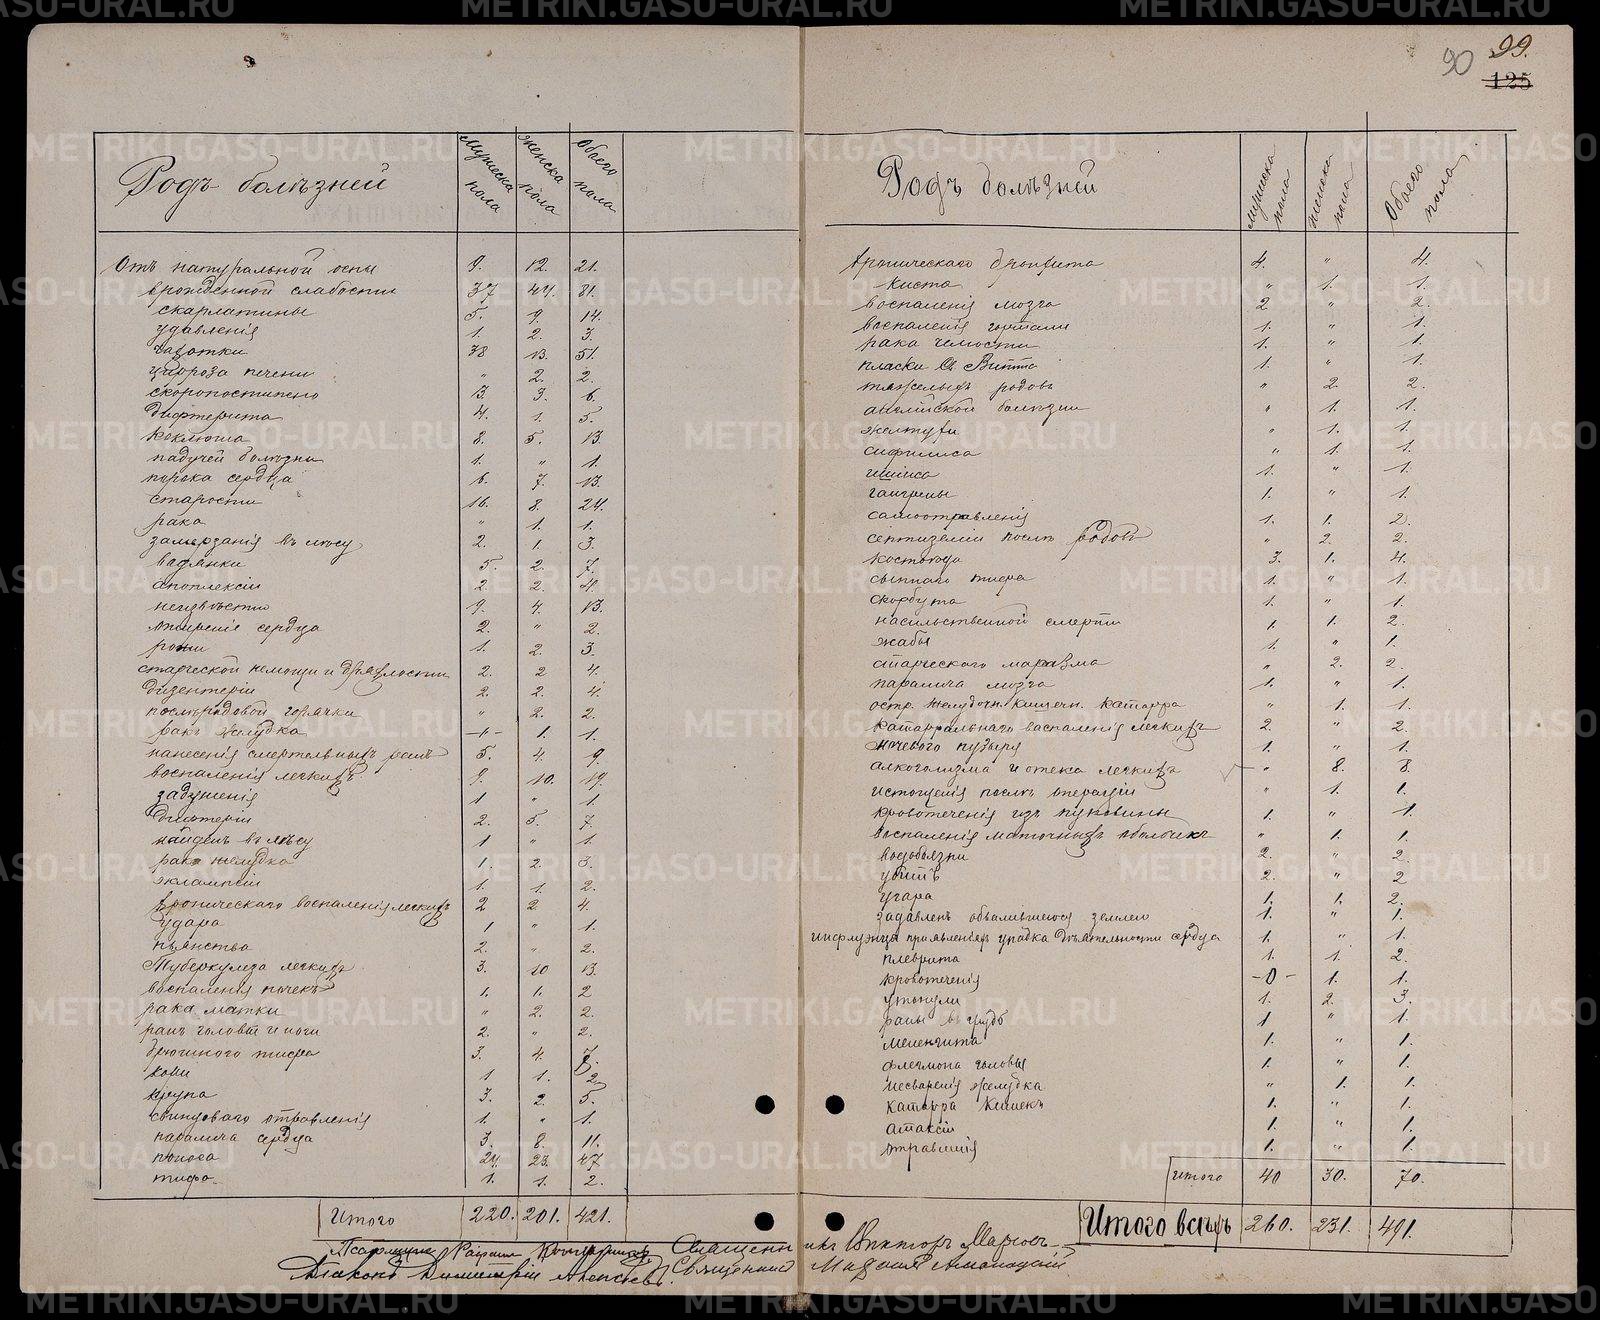 90 99.
125
Родъ болѣзней Мужеска пола Женска пола Обоего пола
Отъ натуральной оспы 9. 12. 21.
врожденной слабости 37 44. 81.
скарлатины 5. 9. 14.
удавленія 1. 2. 3.
чахотки 38 13. 51.
цирроза печени " 2. 2.
скоропостижно 3. 3. 6.
дифтерита 4. 1. 5.
коклюша 8. 5. 13.
падучей болѣзни 1. " 1.
порока сердца 6. 7. 13.
старости 16. 8. 24.
рака " 1. 1.
замерзанія въ лѣсу 2. 1. 3.
водянки 5. 2. 7.
апоплексіи 2. 2. 4.
неизвѣстно 9. 4. 13.
ожиреніе сердца 2. " 2.
рожи 1. 2. 3.
старческой немощи и дряхлости 2. 2 4.
дизентеріи 2. 2. 4.
послѣродовой горячки " 2. 2.
ракъ желудка 1. 1.
нанесенія смертельныхъ ранъ 5. 4. 9.
воспаленія легкихъ 9. 10. 19.
задушенія 1 " 1
Дифтеріи 2. 5. 7.
найденъ въ лѣсу 1 " 1.
рака желудка 1. 2. 3.
эклампсіи 1. 1. 2.
хроническаго воспаленія легкихъ 2 2 4.
удара 1 " 1.
пьянства 2. " 2.
Туберкулеза легкихъ 3. 10 13.
воспаленія почекъ 1. 1. 2
рака матки " 2. 2.
ранъ головы и ноги 2. " 2.
брюшного тифа 3. 4. 7.
кори 1 1. 2.
крупа 3. 2. 5.
свинцоваго отравленія 1. " 1.
паралича сердца 3. 8. 11.
поноса 24. 23. 47
тифа 1. 1. 2.
Итого 220. 201. 421.
Родъ болѣзней мужеска пола женска пола Обоего пола
хроническаго бронхита 4. " 4.
киста " 1. 1.
воспаленія мозга 2 " 2.
воспаленія гортани 1. " 1.
рака челюсти 1. " 1.
пляски Св Витта 1. " 1.
тяжелыхъ родовъ " 2. 2.
англійской болѣзни " 1. 1.
желтухи " 1. 1.
сифилиса " 1. 1.
1. " 1.
гангрены 1. " 1.
самоотравленія 1. 1. 2.
септицеміи послѣ родовъ " 2. 2.
костоѣда 3. 1. 4.
сыпнаго тифа 1. " 1.
скорбута 1. " 1.
насильственной смерти 1. 1. 2.
жабы 1. " 1.
старческаго маразма " 2. 2.
паралича мозга 1. " 1.
остр. желудочн. кишечн. катарра " 1. 1.
катаррального воспаленія легкихъ 2. " 2.
мочевого пузыря 1. " 1.
алкоголизма и отека легкихъ " 8. 8.
истощенія послѣ операціи " 1. 1.
кровотеченія изъ пуповины 1. " 1.
воспаленія маточныхъ " 1. 1.
водобоязни 2. " 2.
убитъ 2. " 2
угара 1. 1. 2.
задавленъ обвалившеюся землею 1. " 1.
упадка дѣятельности сердца 1. " 1.
плеврита 1. 1. 2.
кровотеченія -0- 1. 1.
утонули 1. 2. 3.
раны въ грудь 1 " 1.
менингита 1. " 1.
флегмона головы 1. " 1.
несваренія желудка " 1. 1.
катарра кишекъ 1. " 1.
атаксіи 1. " 1.
отравленія 1. " 1.
итого 40 30. 70.
Итого всѣхъ 260. 231. 491.
Псаломщикъ Священникъ Викторъ
Діаконъ Димитрій Священникъ
METRIKI.GASO-URAL.RU